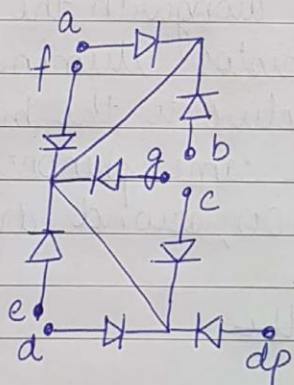 a
f
b
g
c
e
d
dp